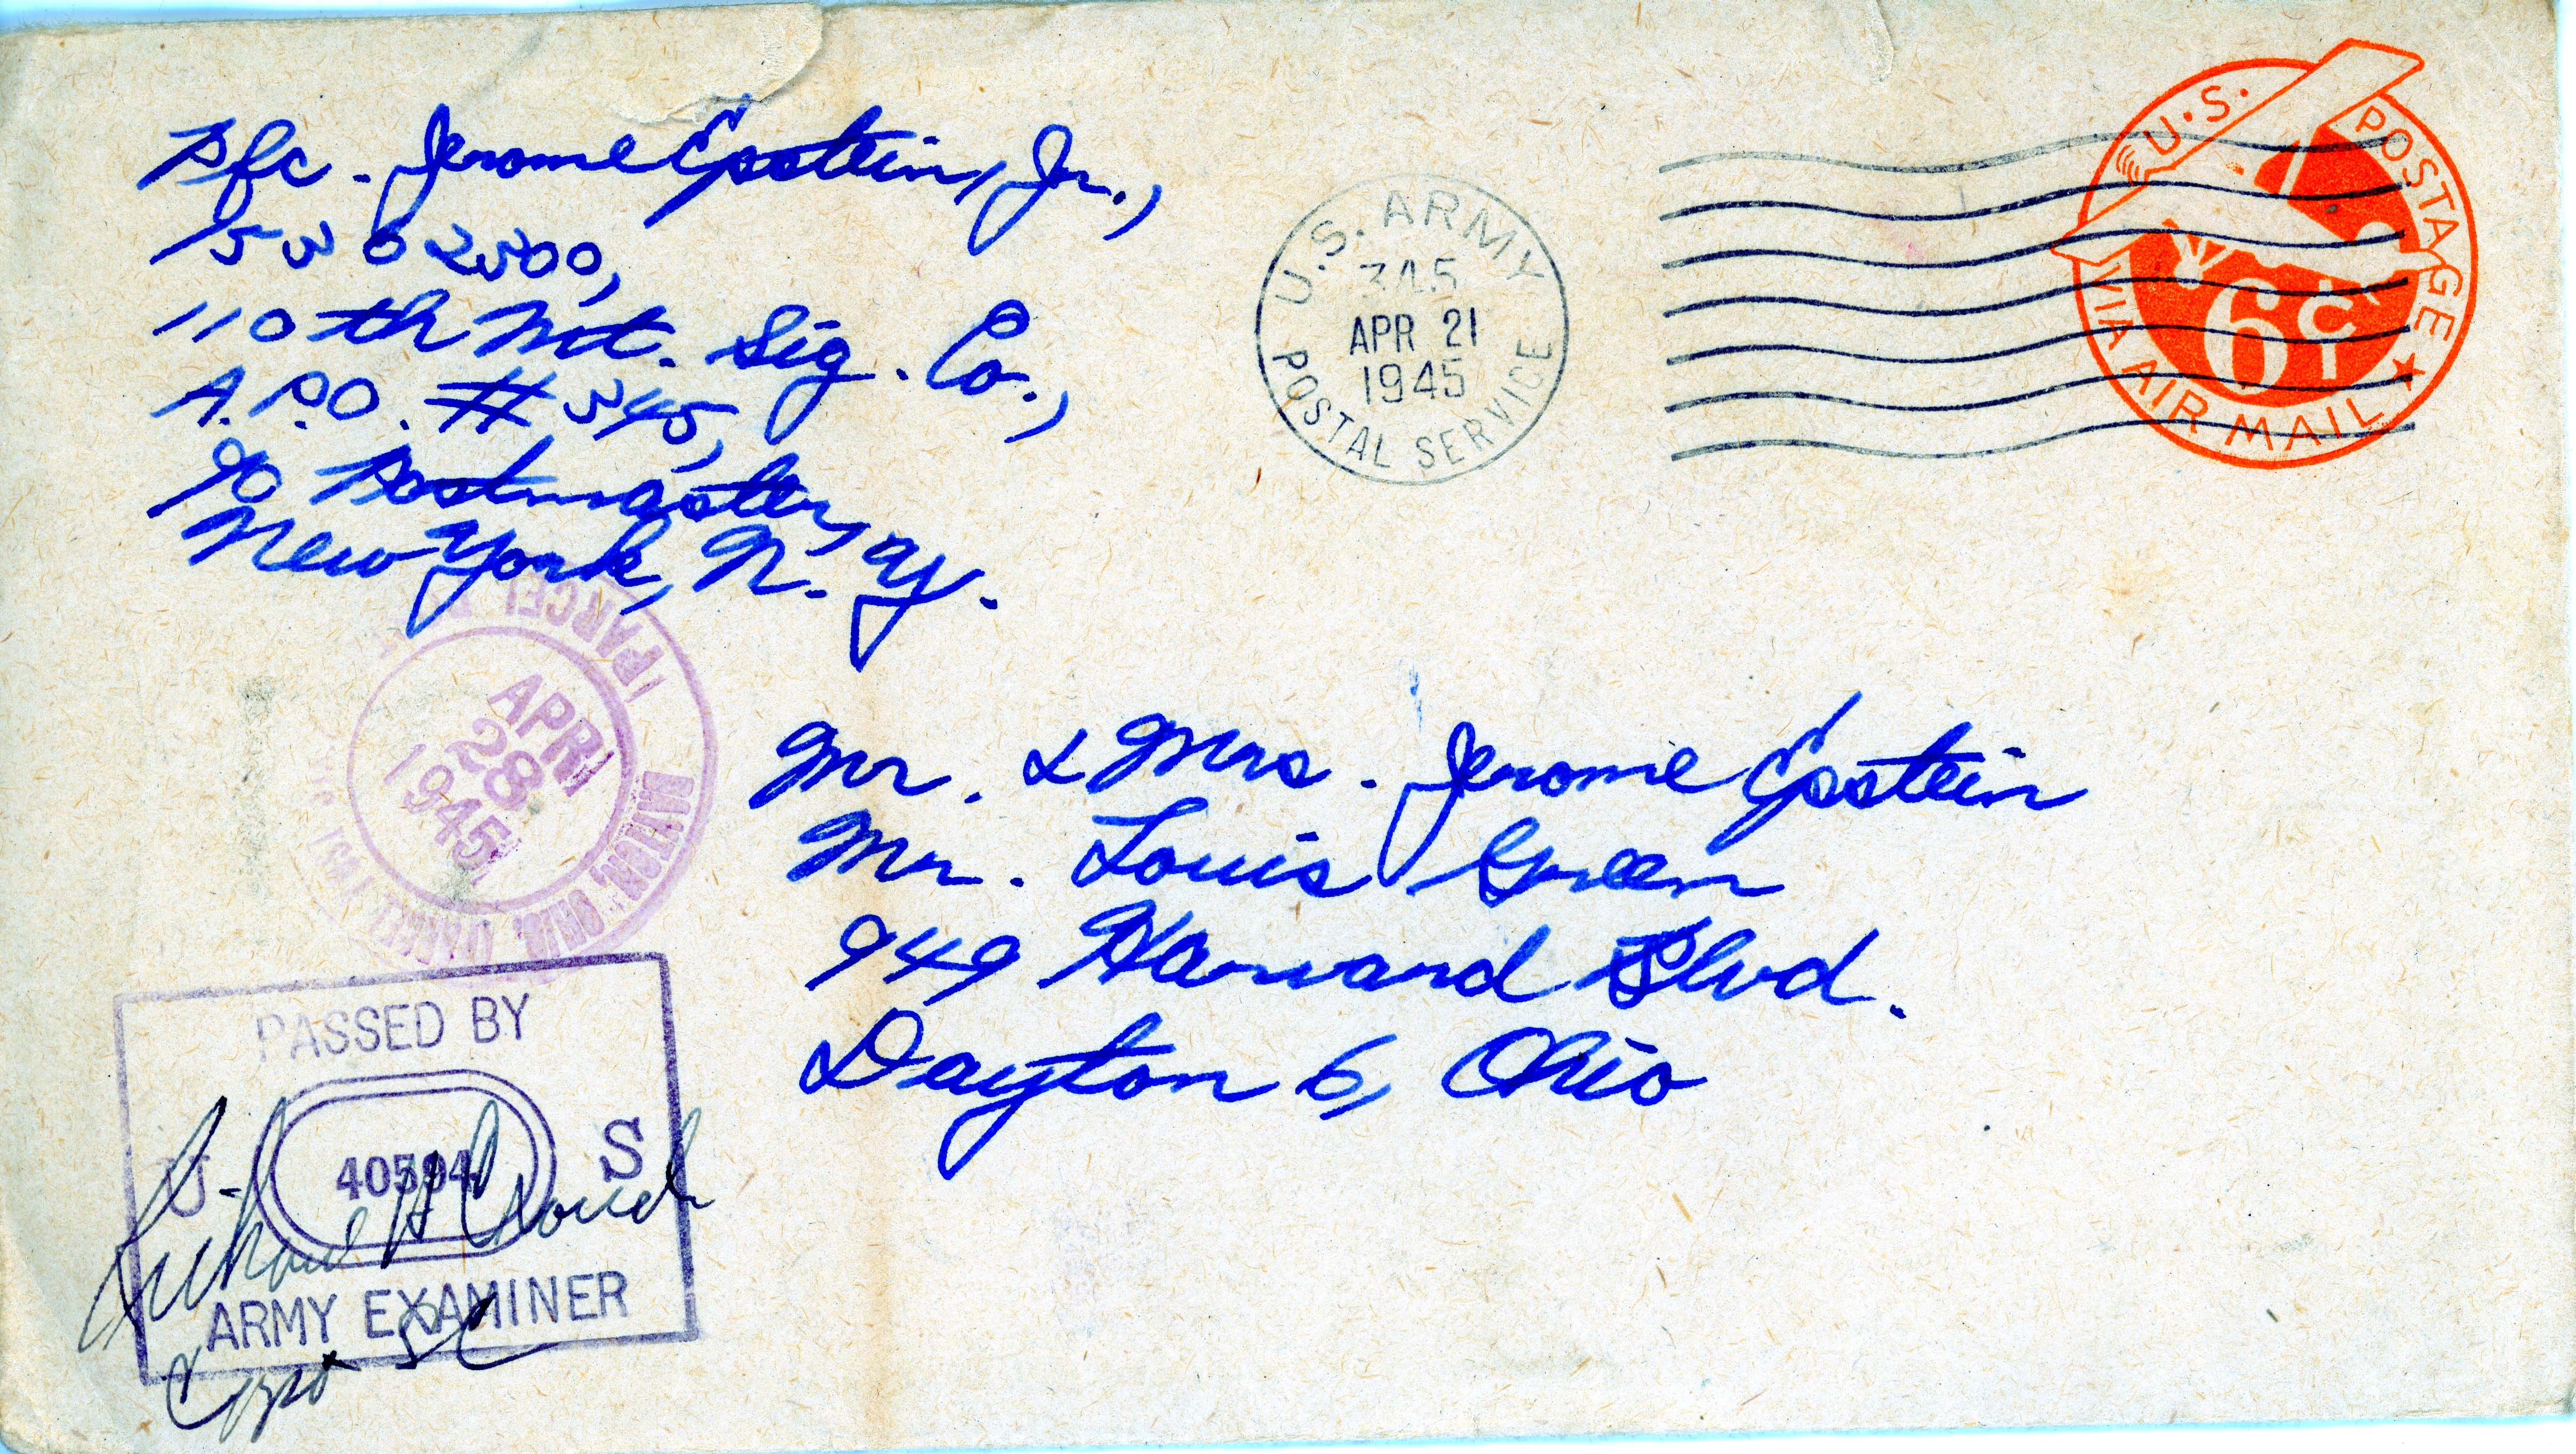 Pfc. Jerome Epstein, Jr.,
15302500,
110th Mt. Sig. Co.,
A.P.O. #345,
c/o Postmaster,
New York, N.Y.
U.S. ARMY
345
APR 21
1945
POSTAL SERVICE
U.S. POSTAGE
6¢
VIA AIR MAIL
PARCEL
APR
28
1945
DAYTON, OHIO
Mr. & Mrs. Jerome Epstein
Mr. Louis Green
949 Harvard Blvd.
Dayton 6, Ohio
PASSED BY
U S
40594
ARMY EXAMINER
Richard H
Capt SC